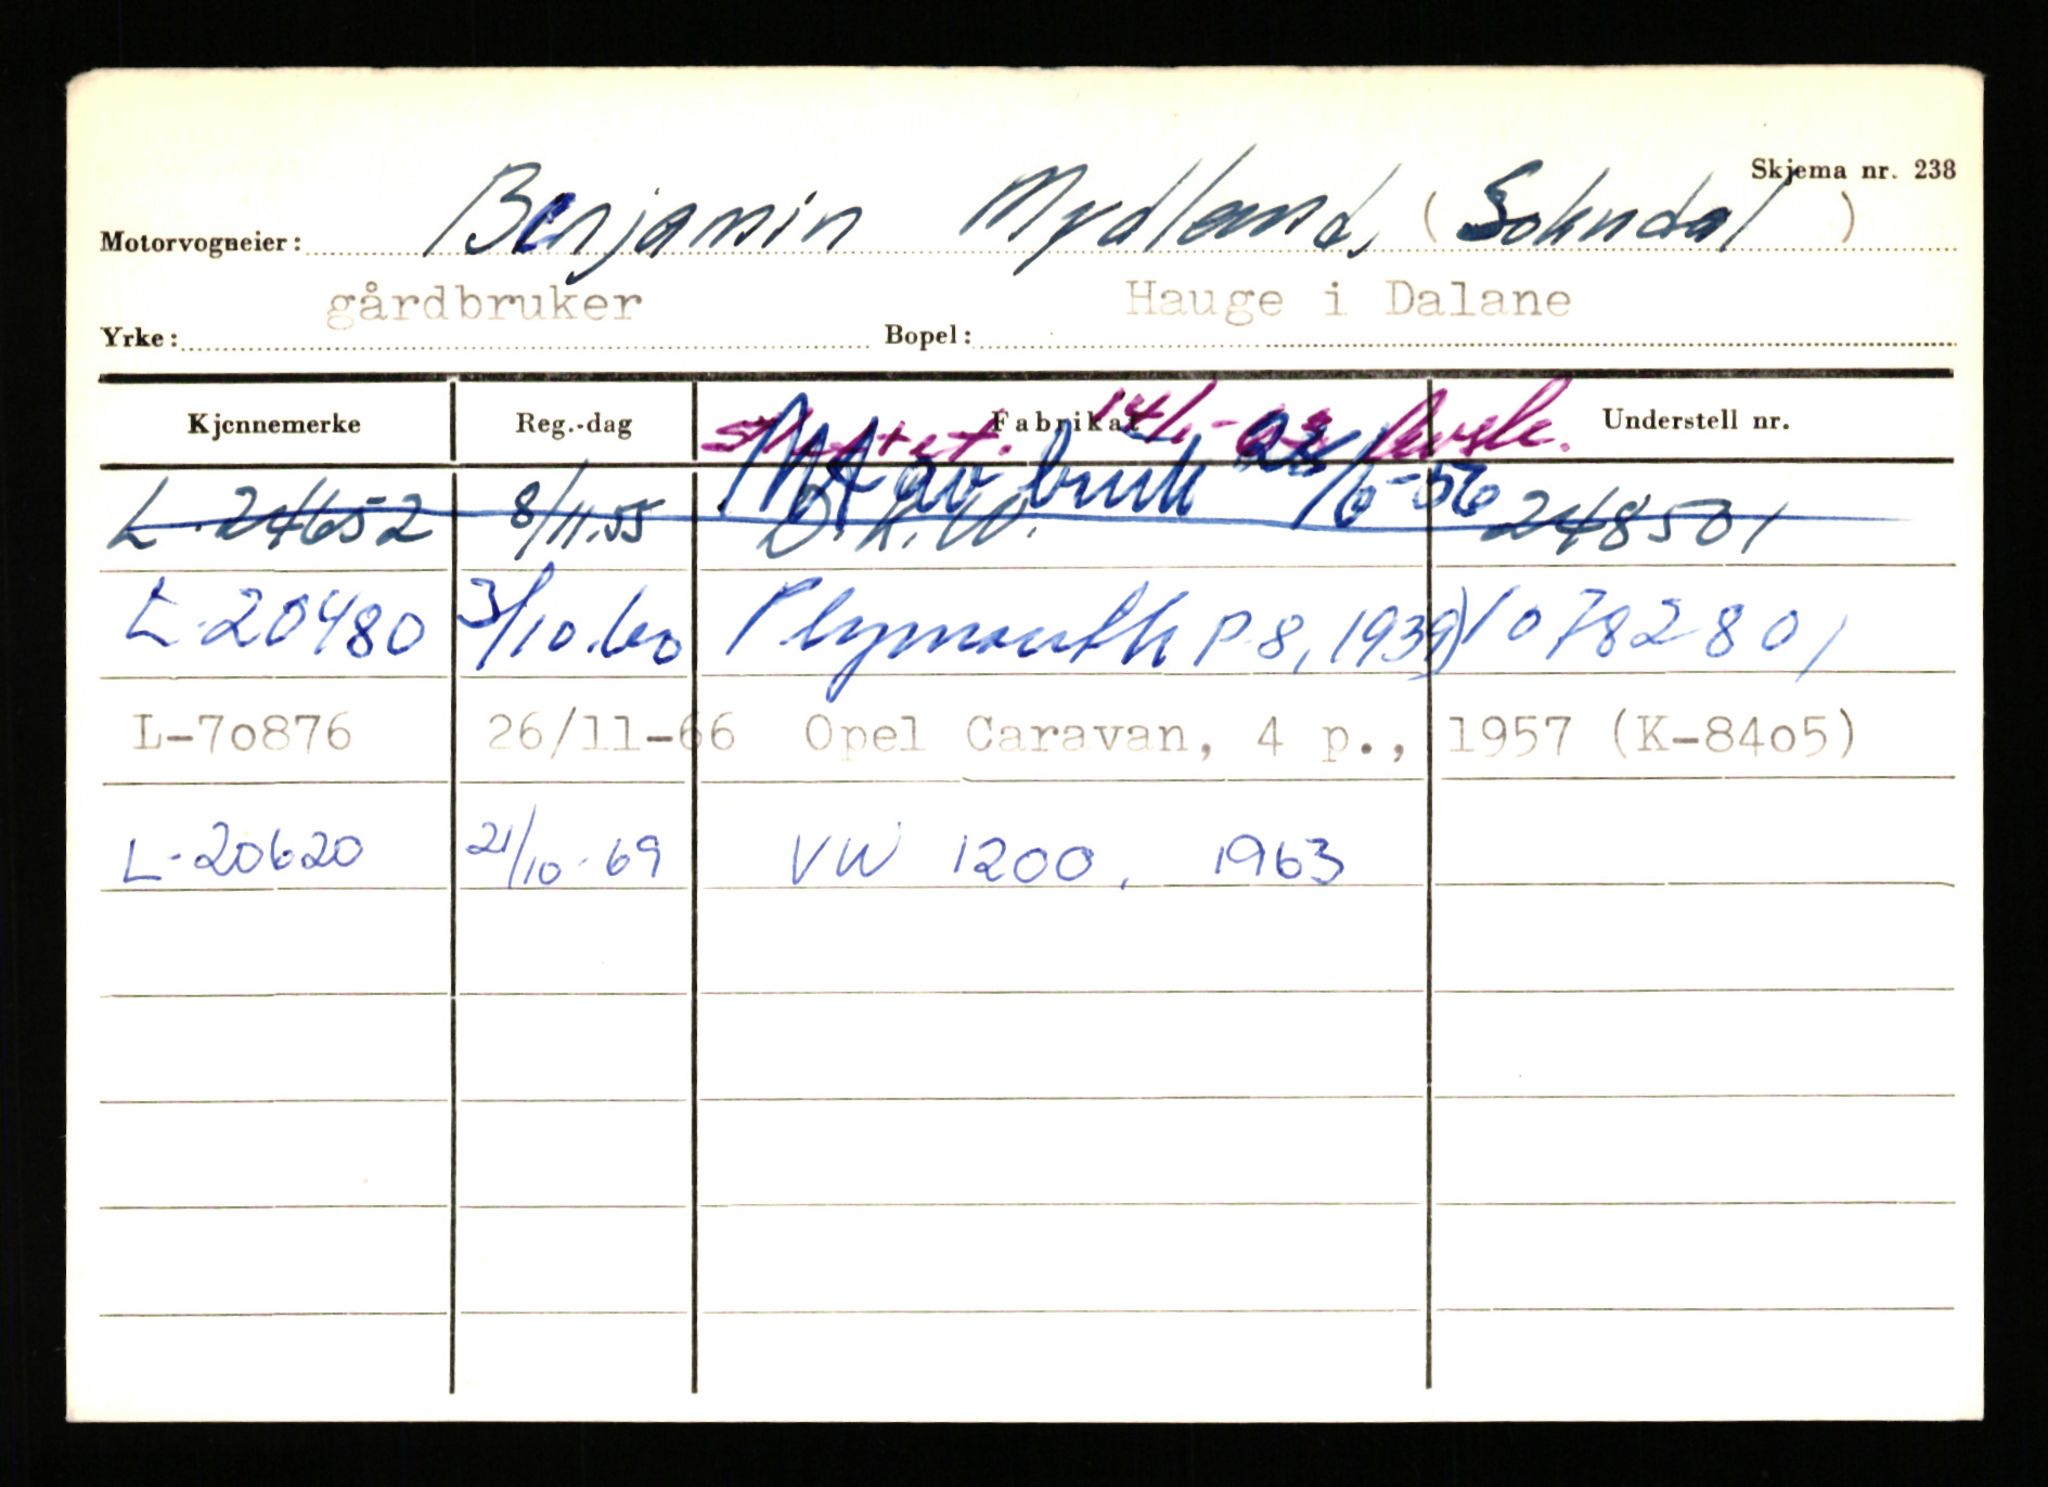 Skjema nr. 238
Motorvogneier: Benjamin Mydland, (Sokndal)
Yrke: gårdbruker Bopel: Hauge i Dalane
Kjennemerke Reg.-dag Fabrikat Understell nr.
14/1-63
tatt av bruk 23/6-56
L-24652 8/11.55 D.K.W. 248501
L-20480 3/10.60 Plymouth P-8, 1939) 10782801
L-70876 26/11-66 Opel Caravan, 4 p., 1957 (K-8405)
L-20620 21/10-69 VW 1200, 1963